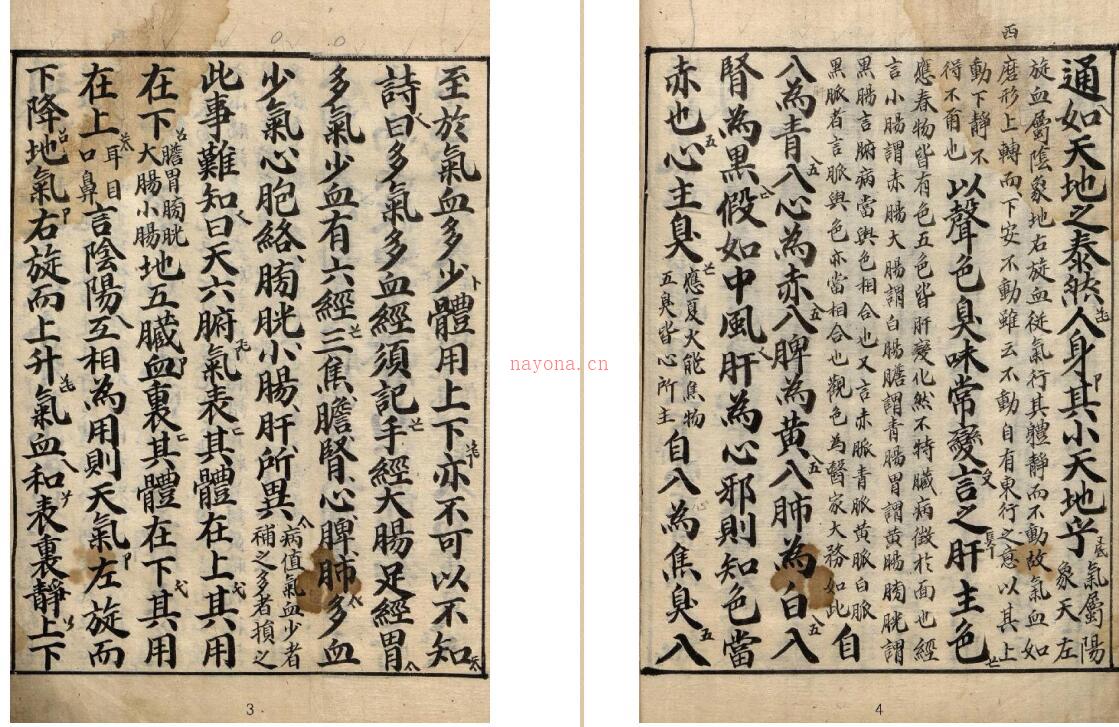 至於氣血多少體用上下亦不可以不知
詩曰多氣多血經須記手經大腸足經胃
多氣少血有六經三焦膽腎心脾肺多血
少氣心胞絡膀胱小腸肝所異病值氣血少者補之多者損之
此事難知曰天六腑氣表其體在上其用
在下膽胃膀胱大腸小腸地五臟血裏其體在下其用
在上耳目口鼻言陰陽互相為用則天氣左旋而
下降地氣右旋而上升氣血和表裏靜上下
3
nayona.cn
西
通如天地之泰然人身其小天地乎氣屬陽象天左
旋血屬陰象地右旋血從氣行其體靜而不動故氣血如
磨形上轉而下安不動雖云不動自有東行之意以其上
動下靜不得不爾也以聲色臭味常變言之肝主色
應春物皆有色五色皆肝變化然不特臟病徵於面也經
言小腸謂赤腸大腸謂白腸膽謂青腸胃謂黃腸膀胱謂
黑腸言腑病當與色相合也又言赤脈青脈黃脈白脈
黑脈者言脈與色亦當相合也觀色為醫家大務如此自
入為青入心為赤入脾為黃入肺為白入
腎為黑假如中風肝為心邪則知色當
赤也心主臭應夏火能焦物五臭皆心所主自入為焦臭入
4